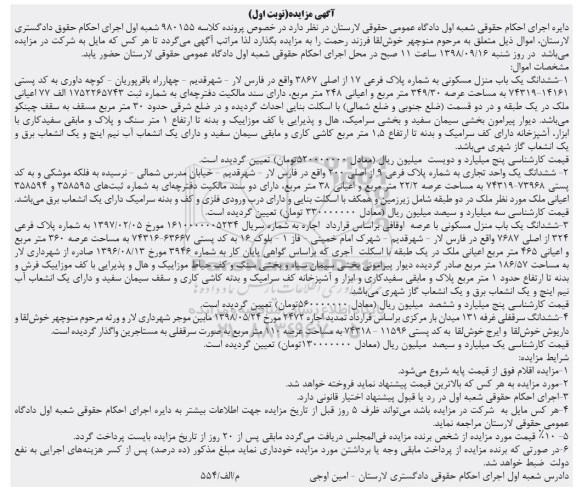 آگهی مزایده(نوبت اول)
دایره اجرای احکام حقوقی شعبه اول دادگاه عمومی حقوقی لارستان در نظر دارد در خصوص پرونده کلاسه ۹۸۰۱۵۵ شعبه اول اجرای احکام حقوق دادگستری
لارستان، اموال ذیل متعلق به مرحوم منوچهر خوش‌لقا فرزند رحمت را به مزایده بگذارد لذا مراتب آگهی می‌گردد تا هر کس که مایل به شرکت در مزایده
می‌باشد در روز شنبه ۱۳۹۸/۰۹/۱۶ ساعت ۱۱ صبح در محل اجرای احکام حقوقی شعبه اول دادگاه عمومی حقوقی لارستان حضور یابد.
مشخصات اموال:
۱-ششدانگ یک باب منزل مسکونی به شماره پلاک فرعی ۱۷ از اصلی ۳۸۶۷ واقع در فارس لار - شهرقدیم - چهارراه باقرپوریان - کوچه داوری به کد پستی
۱۴۱۶۱-۷۴۳۱۹ به مساحت عرصه ۳۴۹/۳۰ متر مربع و اعیانی ۲۴۸ متر مربع، دارای سند مالکیت دفترچه‌ای به شماره ثبت ۱۷۵۲۲۶۵۷۴۳ الف ۷۷ اعیانی
ملک در یک طبقه و در دو قسمت (ضلع جنوبی و ضلع شمالی) با اسکلت بنایی احداث گردیده و در ضلع شرقی حدود ۳۰ متر مربع مسقف به سقف چینکو
می‌باشد. دیوار پیرامون بخشی سیمان سفید و بخشی سرامیک، هال و پذیرایی با کف موزاییک و بدنه تا ارتفاع ۱ متر سنگ و پلاک و مابقی سفیدکاری با
ابزار، آشپزخانه دارای کف سرامیک و بدنه تا ارتفاع ۱,۵ متر مربع کاشی کاری و مابقی سیمان سفید و دارای یک انشعاب آب نیم اینچ و یک انشعاب برق و
یک انشعاب گاز شهری می‌باشد.
قیمت کارشناسی پنج میلیارد و دویست میلیون ریال (معادل ۵۲۰۰۰۰۰۰۰تومان) تعیین گردیده است.
۲- ششدانگ یک واحد تجاری به شماره پلاک فرعی ۹ از اصلی ۲۰۰۰ واقع در فارس لار - شهرقدیم - خیابان مدرس شمالی - نرسیده به فلکه موشکی و به کد
پستی ۷۳۹۶۸-۷۴۳۱۹ به مساحت عرصه ۲۲/۲ متر مربع و اعیانی ۳۸ متر مربع، دارای دو سند مالکیت دفترچه‌ای به شماره ثبت‌های ۳۵۸۵۹۵ و ۳۵۸۵۹۴
اعیانی ملک مورد نظر ملک در دو طبقه شامل زیرزمین و همکف با اسکلت بنایی و دارای درب ورودی فلزی و کف و بدنه سرامیک دارای یک انشعاب برق می‌باشد.
قیمت کارشناسی سه میلیارد و سیصد میلیون ریال (معادل ۳۳۰۰۰۰۰۰۰ تومان) تعیین گردیده است.
۳-ششدانگ یک باب منزل مسکونی با عرصه اوقافی براساس قرارداد اجاره به شماره سریال ۱۶۱۰۰۰۰۰۰۵۲۳۴ مورخ ۱۳۹۷/۰۲/۰۵ به شماره پلاک فرعی
۳۲۴ از اصلی ۷۶۸۷ واقع در فارس لار - شهرقدیم - شهرک امام خمینی - فاز ۱ - بلوک ۱۶ به کد پستی ۶۳۶۶۷-۷۴۳۱۶ به مساحت عرصه ۳۶۰ متر مربع
و اعیانی ۴۶۵ متر مربع اعیانی ملک در یک طبقه با اسکلت آجری که براساس گواهی پایان کار به شماره ۳۹۴۶ مورخ ۱۳۹۶/۰۸/۱۳ صادره از شهرداری لار
به مساحت ۱۸۶/۵۷ متر مربع صادر گردیده دیوار پیرامونی بخشی سیمان سیاه و بخشی سنگ و کف حیاط موزاییک و هال و پذیرایی با کف موزاییک فرش و
بدنه تا ارتفاع حدود ۱ متر مربع پلاک و مابقی سفیدکاری و ابزار و آشپزخانه کف سرامیک و بدنه کاشی کاری و سقف سیمان سفید و دارای یک انشعاب آب
نیم اینچ و یک انشعاب برق و یک انشعاب گاز شهری می‌باشد.
قیمت کارشناسی پنج میلیارد و ششصد میلیون ریال (معادل ۵۶۰۰۰۰۰۰۰تومان) تعیین گردیده است.
۴-ششدانگ سرقفلی غرفه ۱۳۱ میدان بار مرکزی براساس قرارداد تمدید اجاره ۲۴۷۲ مورخ ۱۳۹۸/۰۵/۲۴ مابین موجر شهرداری لار و ورثه مرحوم منوچهر خوش‌لقا و
داریوش خوش‌لقا و ایرج خوش‌لقا به کد پستی ۱۱۵۹۶ - ۷۴۳۱۸ - به مساحت عرصه ۸۱۰ متر مربع به صورت سرقفلی به مستاجرین واگذار گردیده است.
قیمت کارشناسی یک میلیارد و سیصد میلیون ریال (معادل ۱۳۰۰۰۰۰۰۰تومان) تعیین گردیده است.
شرایط مزایده:
۱-مزایده اقلام فوق از قیمت پایه شروع می‌شود.
۲-مورد مزایده به هر کس که بالاترین قیمت پیشنهاد نماید فروخته خواهد شد.
۳-اجرای احکام حقوقی شعبه اول در رد یا قبول پیشنهاد اختیار قانونی دارد.
۴-هر کس مایل به شرکت در مزایده باشد می‌تواند ظرف ۵ روز قبل از تاریخ مزایده جهت اطلاعات بیشتر به دایره اجرای احکام حقوقی شعبه اول دادگاه
عمومی حقوقی لارستان مراجعه نماید.
۵- ۱۰٪ قیمت مورد مزایده از شخص برنده مزایده فی‌المجلس دریافت می‌گردد مابقی پس از ۲۰ روز از تاریخ مزایده بایست پرداخت گردد.
۶-در صورتی که برنده مزایده از پرداخت مابقی وجه یا برداشتن مورد مزایده خودداری نماید مبلغ مذکور (ده درصد) پس از کسر هزینه‌های اجرایی به نفع
دولت ضبط خواهد شد.
دادرس شعبه اول اجرای احکام حقوقی دادگستری لارستان - امین اوجی م/الف/۵۵۴